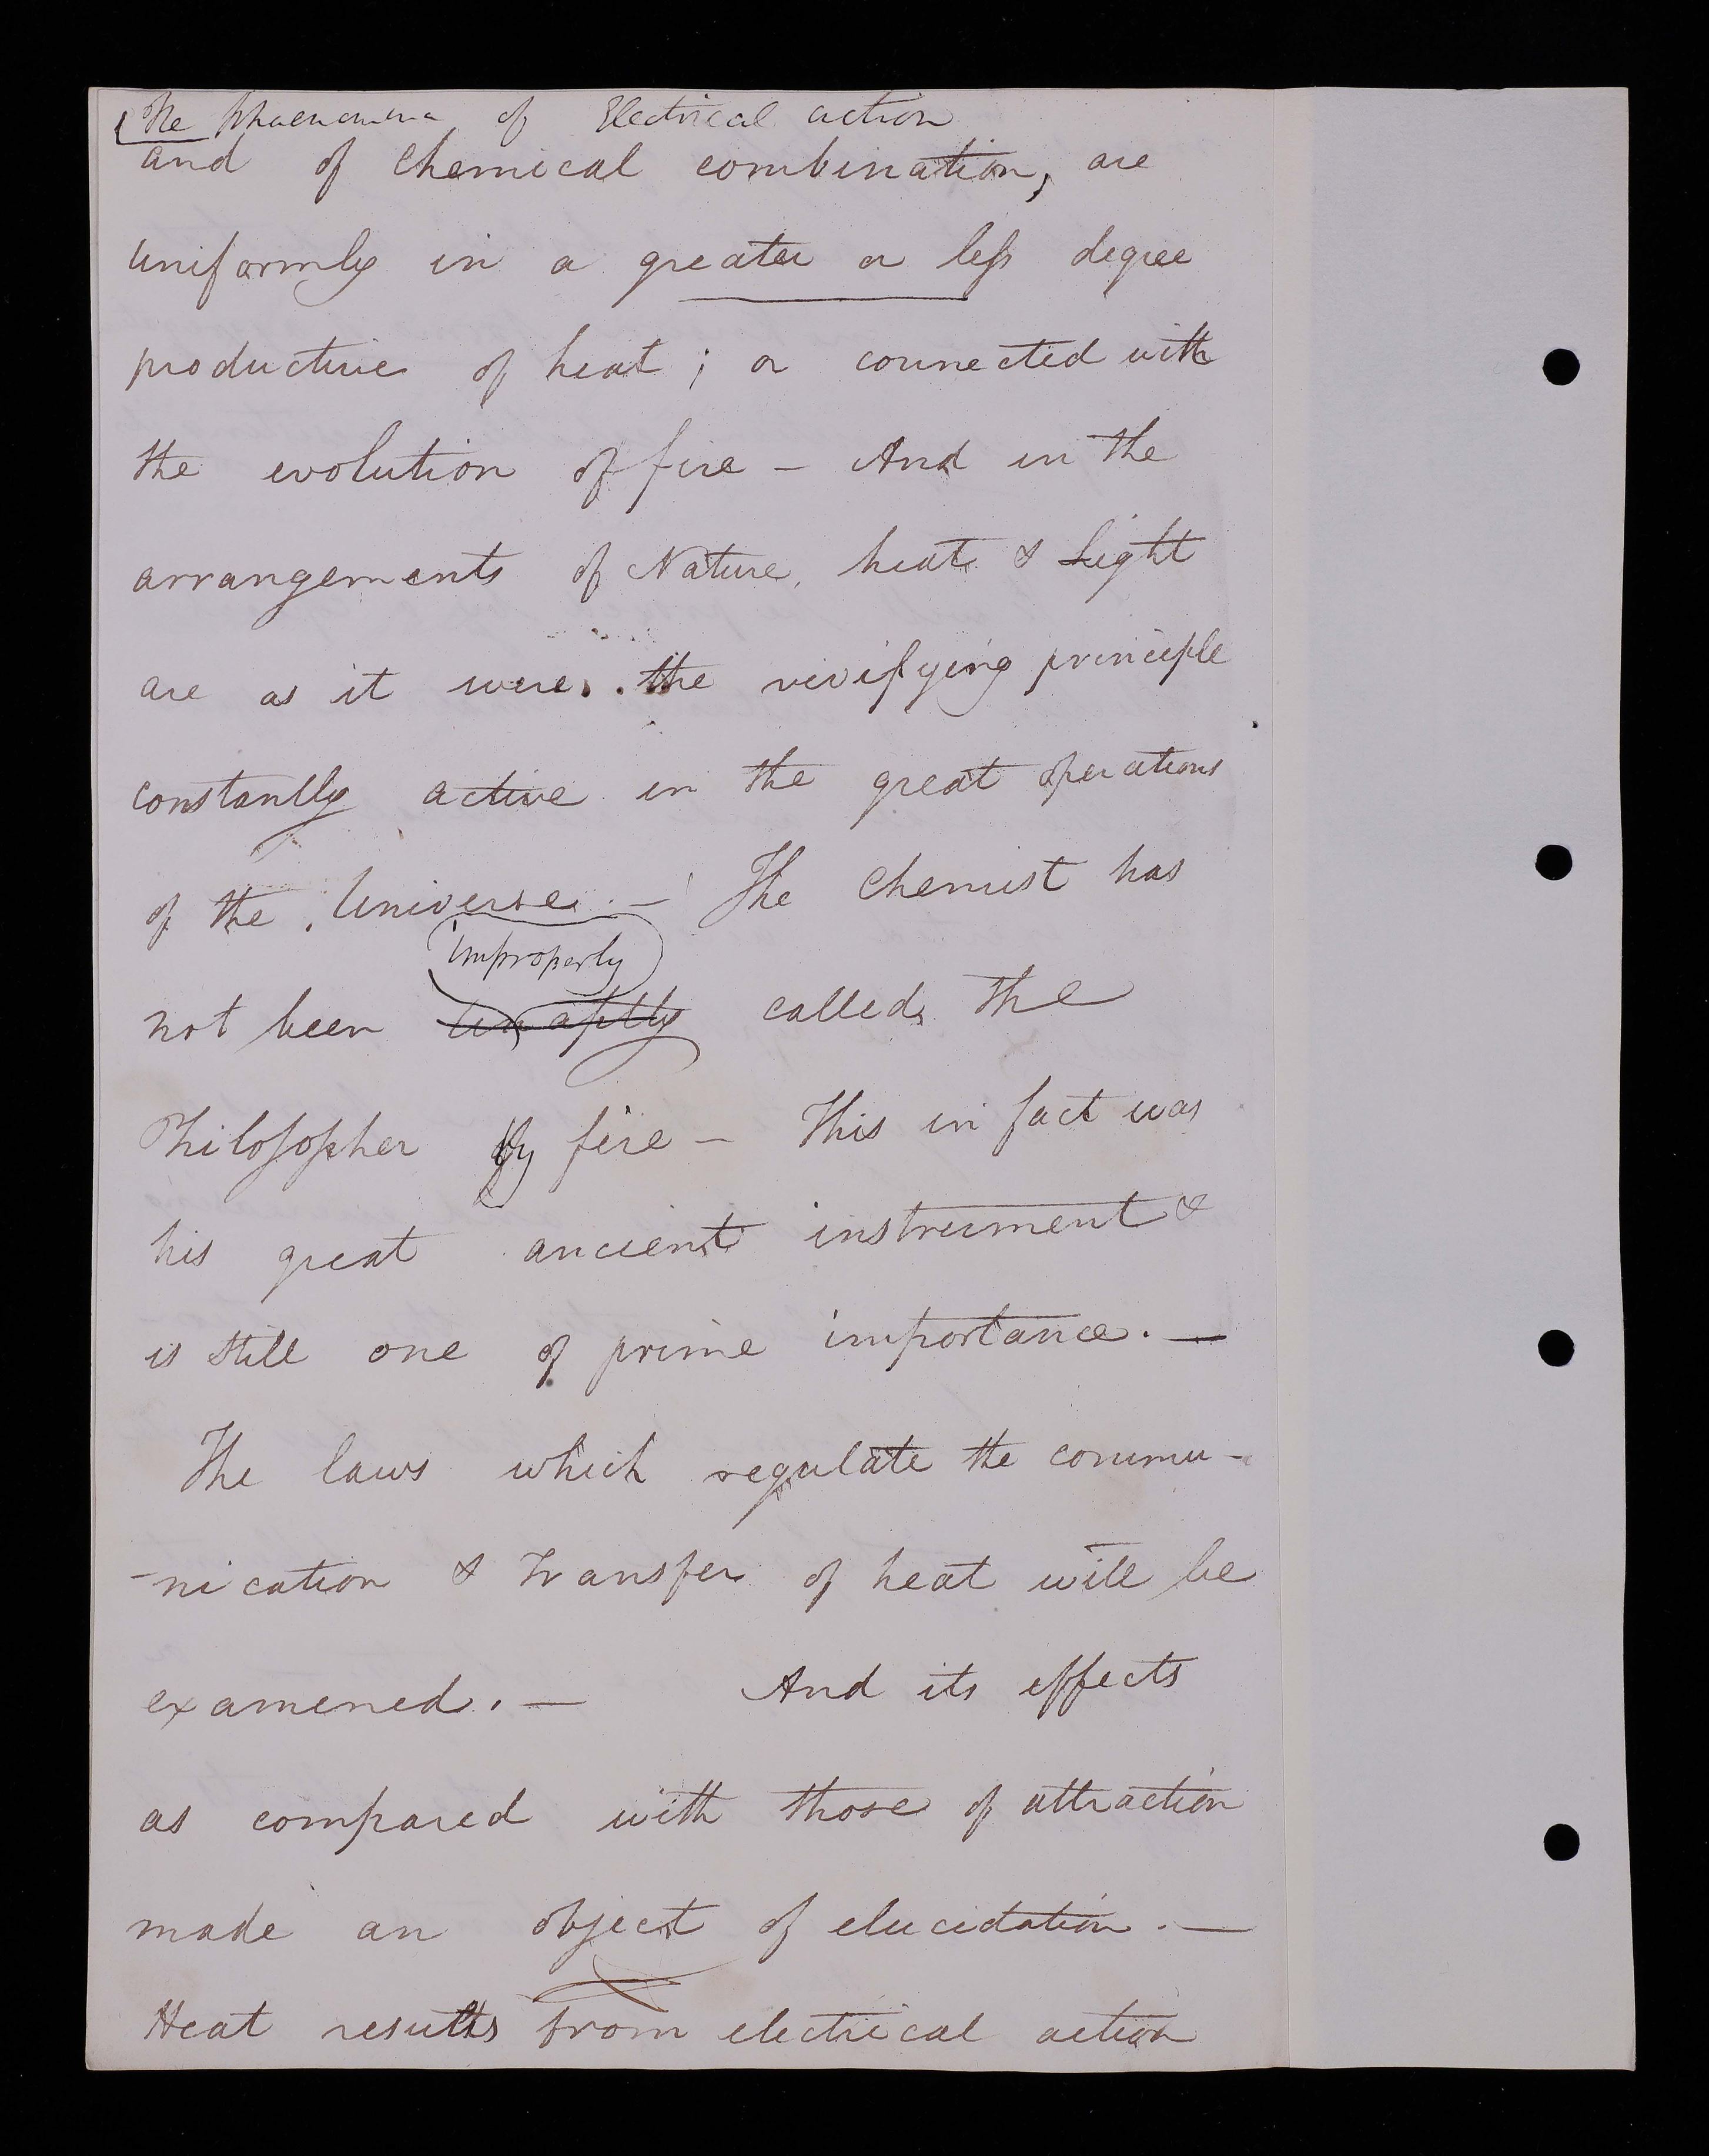 The phaenomena of Electrical action
and of Chemical combination, are
uniformly in a greater or less degree
productive of heat; or connected with
the evolution of fire – And in the
arrangements of Nature, heat & Light
are as it were. the vivifying principle
constantly active in the great operations
of the Universe. – The Chemist has
improperly
not been un aptly called the
Philosopher by fire – This in fact was
his great ancient instrument &
is still one of prime importance. —
The laws which regulate the commu-
-nication & Transfer of heat will be
examened. — And its effects
as compared with those of attraction
made an object of elucidation. —
Heat results from electrical action